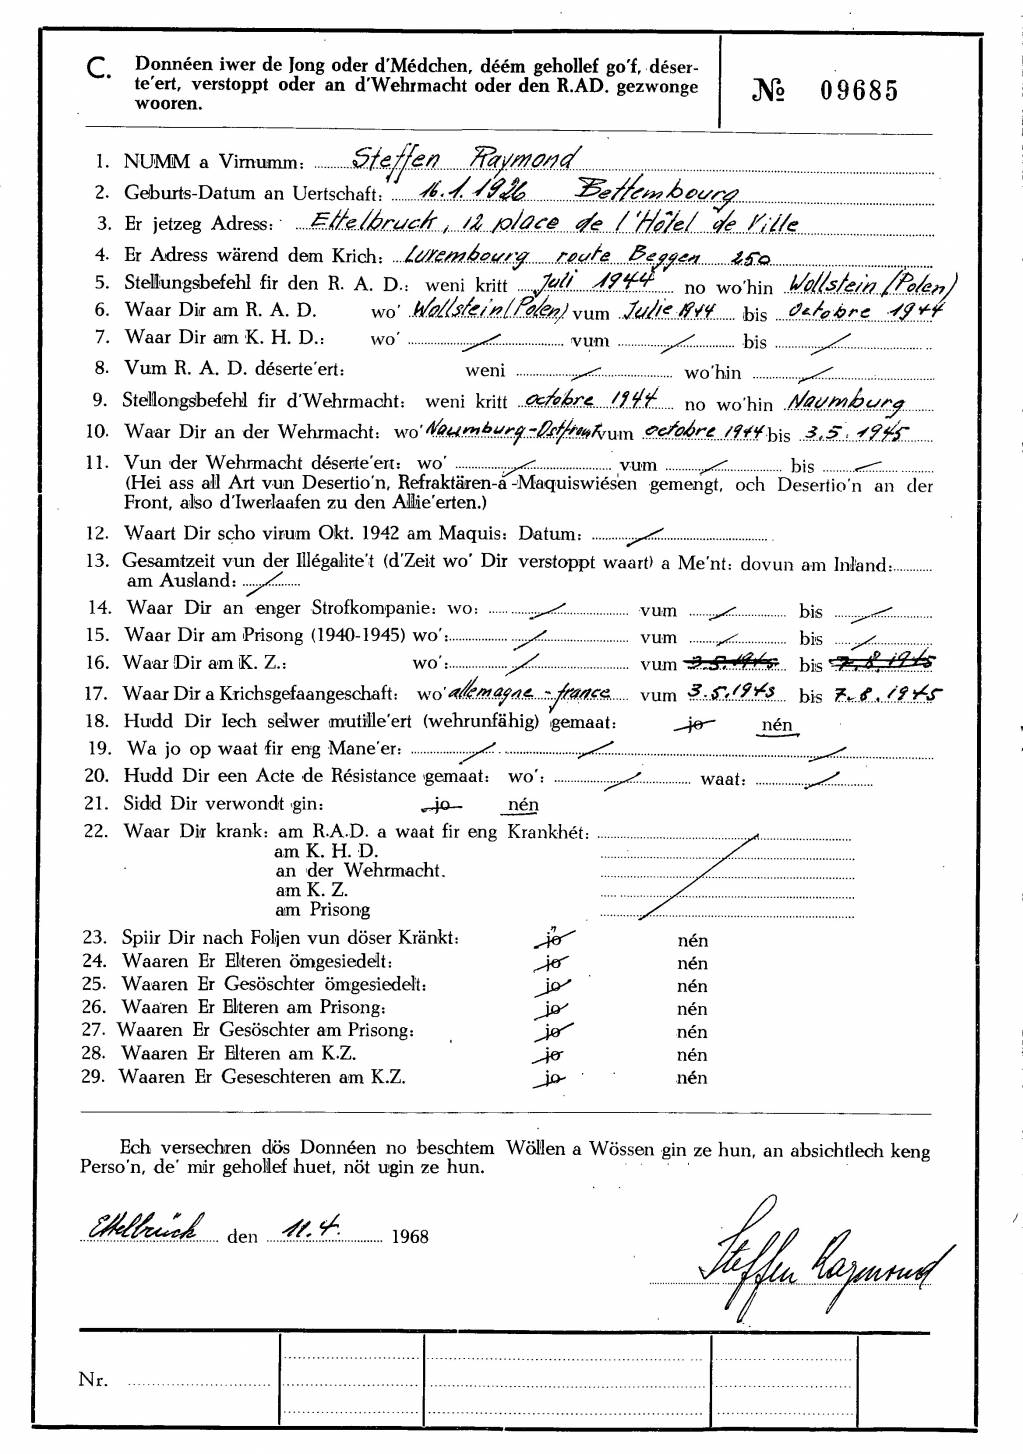 C. Donnéen iwer de Jong oder d'Médchen, déém gehollef go'f, déser-
te'ert, verstoppt oder an d'Wehrmacht oder den R.AD. gezwonge
wooren.
№ 09685
1. NUMM a Virnumm: Steffen Raymond
2. Geburts-Datum an Uertschaft: 16.1.1926 Bettembourg
3. Er jetzeg Adress: Ettelbruck, 12 place de l'Hôtel de Ville
4. Er Adress wärend dem Krich: Luxembourg route Beggen 250
5. Stellungsbefehl fir den R. A. D.: weni kritt Juli 1944 no wo'hin Wollstein (Polen)
6. Waar Dir am R. A. D. wo' Wollstein (Polen) vum Julie 1944 bis Octobre 1944
7. Waar Dir am K. H. D.: wo' / vum / bis /
8. Vum R. A. D. déserte'ert: weni / wo'hin /
9. Stellongsbefehl fir d'Wehrmacht: weni kritt octobre 1944 no wo'hin Naumburg
10. Waar Dir an der Wehrmacht: wo' Naumburg-Ostfront vum octobre 1944 bis 3.5.1945
11. Vun der Wehrmacht déserte'ert: wo' / vum / bis /
(Hei ass all Art vun Desertio'n, Refraktären-a-Maquiswiésen gemengt, och Desertio'n an der
Front, also d'Iwerlaafen zu den Allie'erten.)
12. Waart Dir scho virum Okt. 1942 am Maquis: Datum: /
13. Gesamtzeit vun der Illégalite't (d'Zeit wo' Dir verstoppt waart) a Me'nt: dovun am Inland:
am Ausland: /
14. Waar Dir an enger Strofkompanie: wo: / vum / bis /
15. Waar Dir am Prisong (1940-1945) wo': / vum / bis /
16. Waar Dir am K. Z.: wo': / vum 3.5.1945 bis 7.8.1945
17. Waar Dir a Krichsgefaangeschaft: wo' allemagne - france vum 3.5.1945 bis 7.8.1945
18. Hudd Dir Iech selwer mutille'ert (wehrunfähig) gemaat: jo nén
19. Wa jo op waat fir eng Mane'er: / / /
20. Hudd Dir een Acte de Résistance gemaat: wo': / waat: /
21. Sidd Dir verwondt gin: jo nén
22. Waar Dir krank: am R.A.D. a waat fir eng Krankhét:
am K. H. D.
an der Wehrmacht.
am K. Z.
am Prisong
23. Spiir Dir nach Foljen vun döser Kränkt: jo nén
24. Waaren Er Elteren ömgesiedelt: jo nén
25. Waaren Er Gesöschter ömgesiedelt: jo nén
26. Waaren Er Elteren am Prisong: jo nén
27. Waaren Er Gesöschter am Prisong: jo nén
28. Waaren Er Elteren am K.Z. jo nén
29. Waaren Er Geseschteren am K.Z. jo nén
Ech versechren dös Donnéen no beschtem Wöllen a Wössen gin ze hun, an absichtlech keng
Perso'n, de' mir gehollef huet, nöt ugin ze hun.
Ettelbrück den 11.4. 1968
Steffen Raymond
Nr.